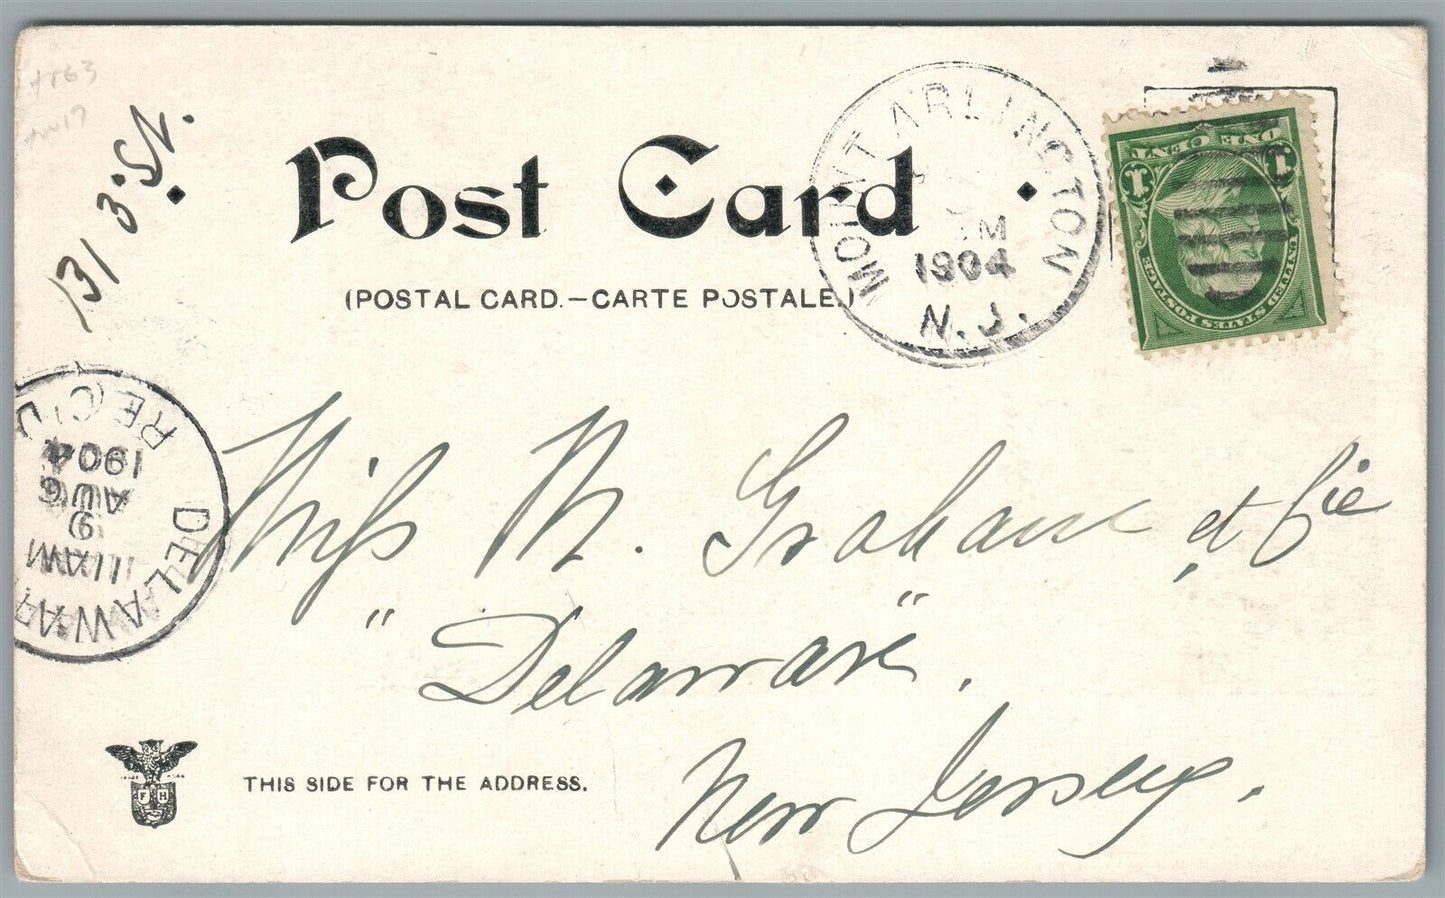 Post Card
(POSTAL CARD.—CARTE POSTALE.)
MOUNT ARLINGTON
M
1904
N. J.
ONE CENT
1 1
UNITED STATES POSTAGE
REC'D
1904
AUG
9
AM
DELAWAR
Miss M. Graham et Cie
"Delaware".
New Jersey.
F H
THIS SIDE FOR THE ADDRESS.